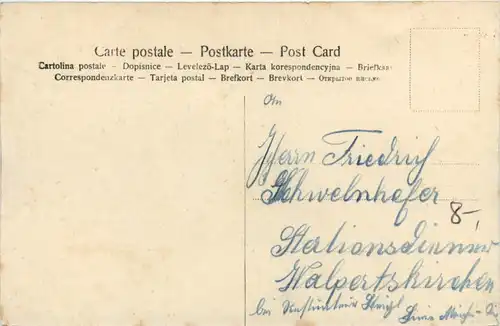 Carte postale — Postkarte — Post Card
Cartolina postale - Dopisnice — Levelező-Lap — Karta korespondencyjna — Briefkaa
Correspondenzkarte — Tarjeta postal — Brefkort — Brevkort — Открытое письмо
An
Herrn Friedrich
Schwelnhofer
8-,
Stationsdienner
Walpertskirchen
bei
Linie